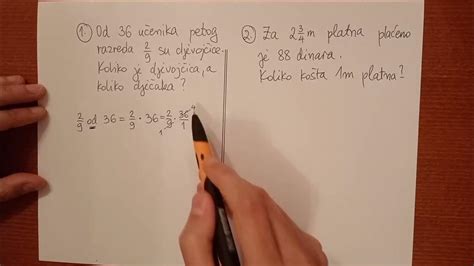 1. Od 36 učenika petog
razreda 2/9 su djevojčice.
Koliko je djevojčica, a
koliko dječaka?
2/9 od 36 = 2/9 · 36 = 2/9 · 36/1
1 4
2. Za 2 3/4 m platna plaćeno
je 88 dinara.
Koliko košta 1m platna?